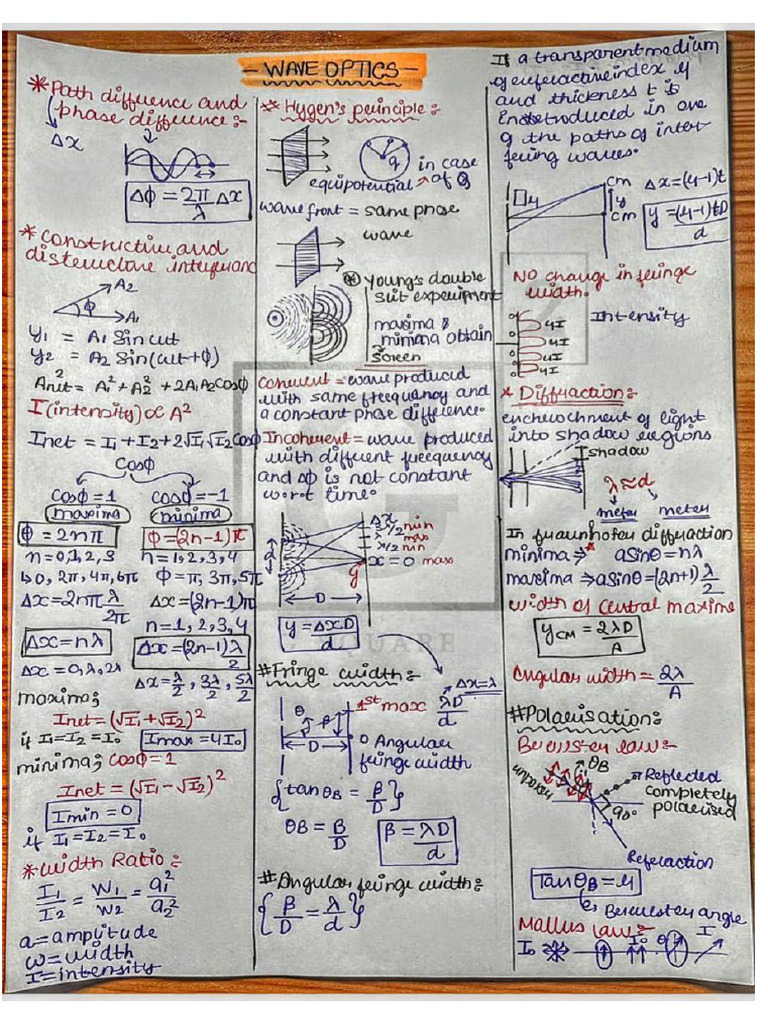 WAVE OPTICS
* Path diffrence and
phase difference:-
Δx
Δϕ = 2π/λ Δx
* Constructive and
distructive interferance
A2
ϕ
A1
y1 = A1 Sin wt
y2 = A2 Sin(wt+ϕ)
A²net = A1² + A2² + 2A1A2cosϕ
I(intensity) ∝ A²
Inet = I1 + I2 + 2√I1√I2 cosϕ
cosϕ
cosϕ=1 cosϕ=-1
maxima minima
ϕ = 2nπ ϕ=(2n-1)π
n=0,1,2,3 n=1,2,3,4
↳0, 2π, 4π, 6π ϕ=π, 3π, 5π
Δx=2nπ λ/2π Δx=(2n-1)π
n=1,2,3,4
Δx=nλ Δx=(2n-1)λ/2
Δx=0,λ,2λ Δx=λ/2, 3λ/2, 5λ/2
maxima;
Inet=(√I1+√I2)²
if I1=I2=I0 Imax=4I0
minima; cosϕ=1
Inet=(√I1-√I2)²
Imin=0
if I1=I2=I0
* width Ratio:-
I1/I2 = W1/W2 = a1²/a2²
a=amplitude
w=width
I=intensity
** Hygen's principle:-
q
in case
equipotential → of Q
wave front = same phase
wave
* Young's double
slit experiment
maxima &
minima obtain
Screen
Coherent = wave produced
with same frequency and
a constant phase difference.
Incoherent = wave produced
with different frequency
and Δϕ is not constant
w.r.t time.
Δx
3λ/2 min
λ max
λ/2 min
x=0 max
d
y
D
y = ΔxD/d
# Fringe width:-
Δx=λ
1st max λD/d
θ β
D
0 Angular
fringe width
{tan θB = β/D}
θB = β/D
β = λD/d
# Angular fringe width:-
{β/D = λ/d}
If a transparent medium
of refractive index μ
and thickness t is
introduced in one
of the paths of inter-
fering waves.
μ
CM
y
CM
Δx=(μ-1)t
y = (μ-1)tD/d
NO change in fringe
width.
Intensity
0
4I
0
4I
0
4I
0
4I
* Diffraction:-
encherochment of light
into shadow regions
shadow
λ≈d
meter meter
In fraunhofer diffraction
minima ⇒ a sinθ=nλ
maxima ⇒ a sinθ=(2n+1)λ/2
width of central maxima
yCM = 2λD/A
Angular width = 2λ/A
# Polarisation:-
Brewster law:-
unpolar
θB
Reflected
completely
polarised
90°
Refraction
Tan θB = μ
↳ Brewster angle
Mallus law:-
I0
θ
I